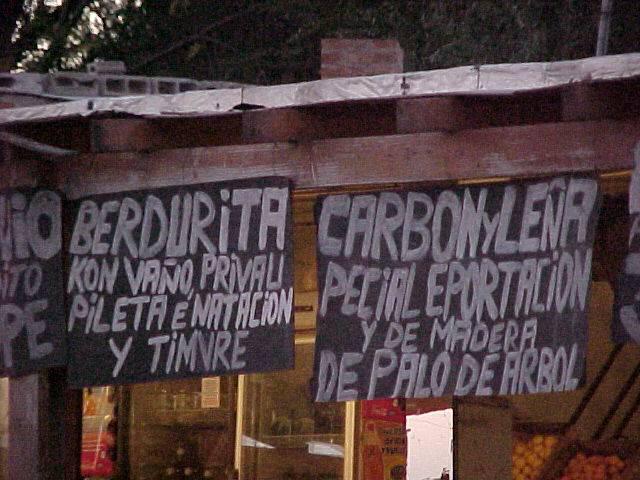 BERDURiTA
KON VAÑO, PRiVAU
PiLETA É NATACiON
Y TiMVRE
CARBON Y LEÑA
PECiAL EPORTACiON
Y DE MADERA
DE PALO DE ARBOL